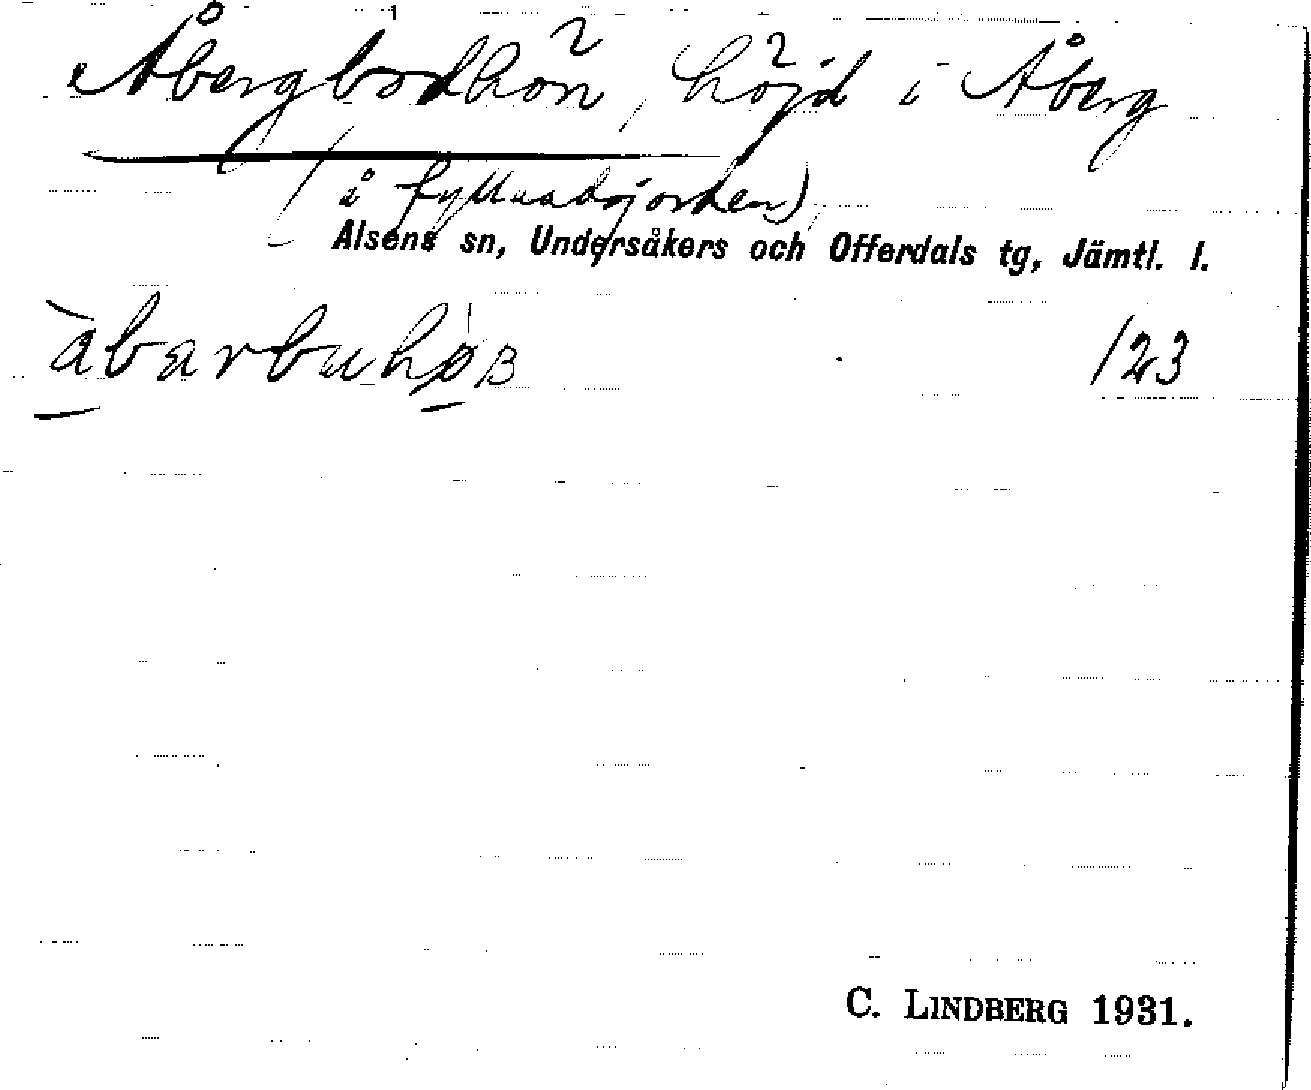 Åbergbodhön, höjd i Åberg
(å fyllnadsjorden)
Alsens sn, Undersåkers och Offerdals tg, Jämtl. l.
123
C. LINDBERG 1931.